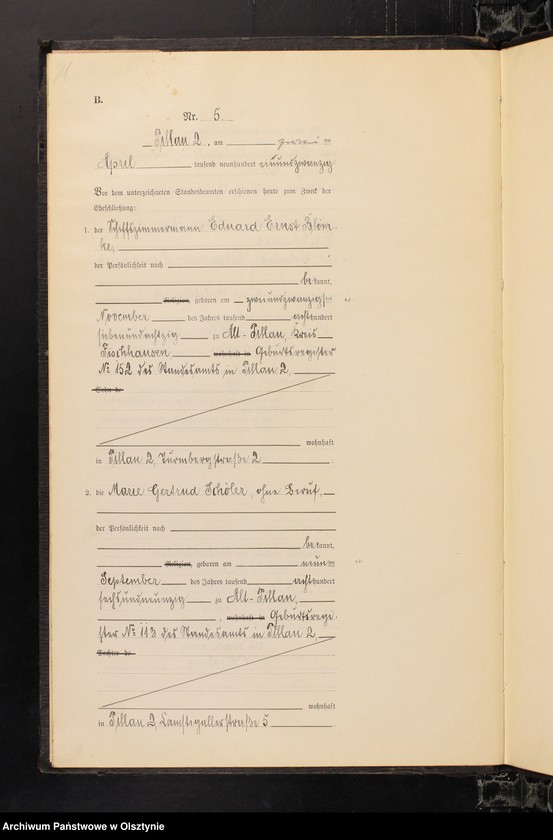 B.
Nr. 5
Pillau 2, am zwei ten
April tausend neunhundert einundzwanzig
Vor dem unterzeichneten Standesbeamten erschienen heute zum Zweck der
Eheschließung:
1. der Schiffszimmermann Eduard Ernst Blöm-
ke,
der Persönlichkeit nach
bekannt,
Religion, geboren am zweiundzwanzigsten
November des Jahres tausend achthundert
siebenundachtzig zu Alt-Pillau, Kreis
Fischhausen, wohnhaft in Geburtsregister
No 152 des Standesamts in Pillau 2,
Sohn de
wohnhaft
in Pillau 2, Turmbergstraße 2
2. die Marie Gertrud Schöler, ohne Beruf,
der Persönlichkeit nach
bekannt,
Religion, geboren am neunten
September des Jahres tausend achthundert
sechsundneunzig zu Alt-Pillau,
wohnhaft in Geburtsregi-
ster No 113 des Standesamts in Pillau 2,
Tochter de
wohnhaft
in Pillau 2, Camstigallerstraße 5
Archiwum Państwowe w Olsztynie